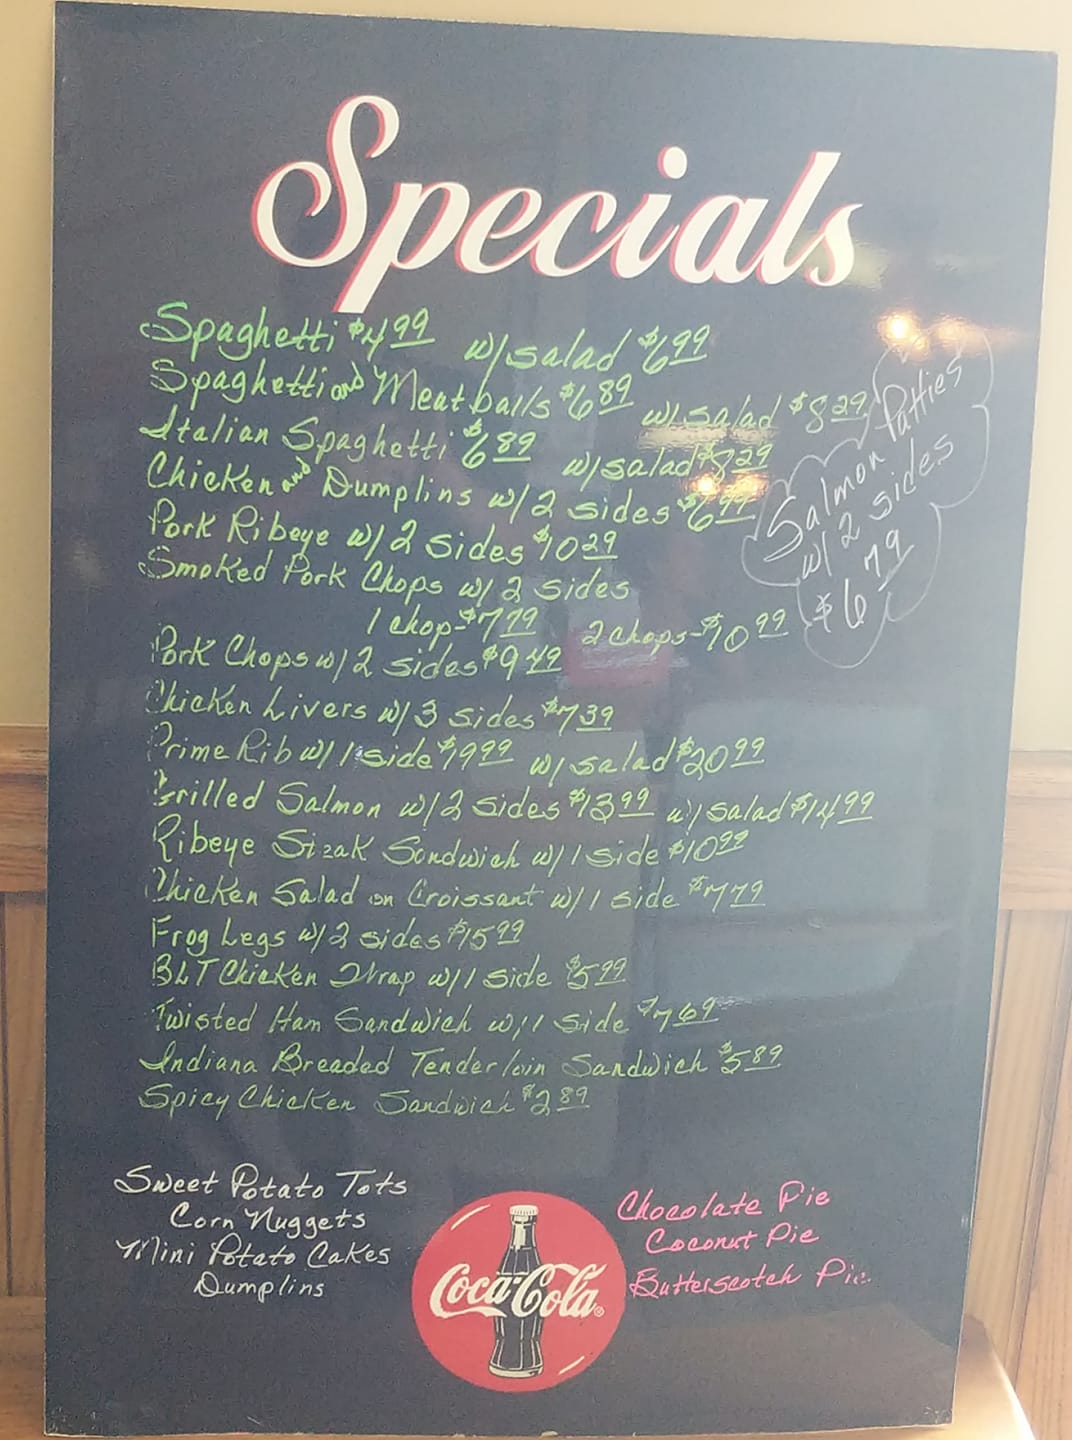 Specials
Spaghetti $4.99 w/salad $6.99
Spaghetti and Meatballs $6.89 w/salad $8.29
Italian Spaghetti $6.89 w/salad $8.29
Chicken and Dumplins w/2 sides $6.99
Pork Ribeye w/2 sides $10.29
Smoked Pork Chops w/2 sides
1 chop-$7.79 2 chops-$10.99
Pork Chops w/2 sides $9.49
Chicken Livers w/3 sides $7.39
Prime Rib w/1 side $19.99 w/salad $20.99
Grilled Salmon w/2 sides $13.99 w/salad $14.99
Ribeye Steak Sandwich w/1 side $10.99
Chicken Salad on Croissant w/1 side $7.79
Frog Legs w/2 sides $15.99
BLT Chicken Wrap w/1 side $5.99
Twisted Ham Sandwich w/1 side $7.69
Indiana Breaded Tenderloin Sandwich $5.89
Spicy Chicken Sandwich $2.89
Salmon Patties
w/2 sides
$6.79
Sweet Potato Tots
Corn Nuggets
Mini Potato Cakes
Dumplins
Coca-Cola®
Chocolate Pie
Coconut Pie
Butterscotch Pie